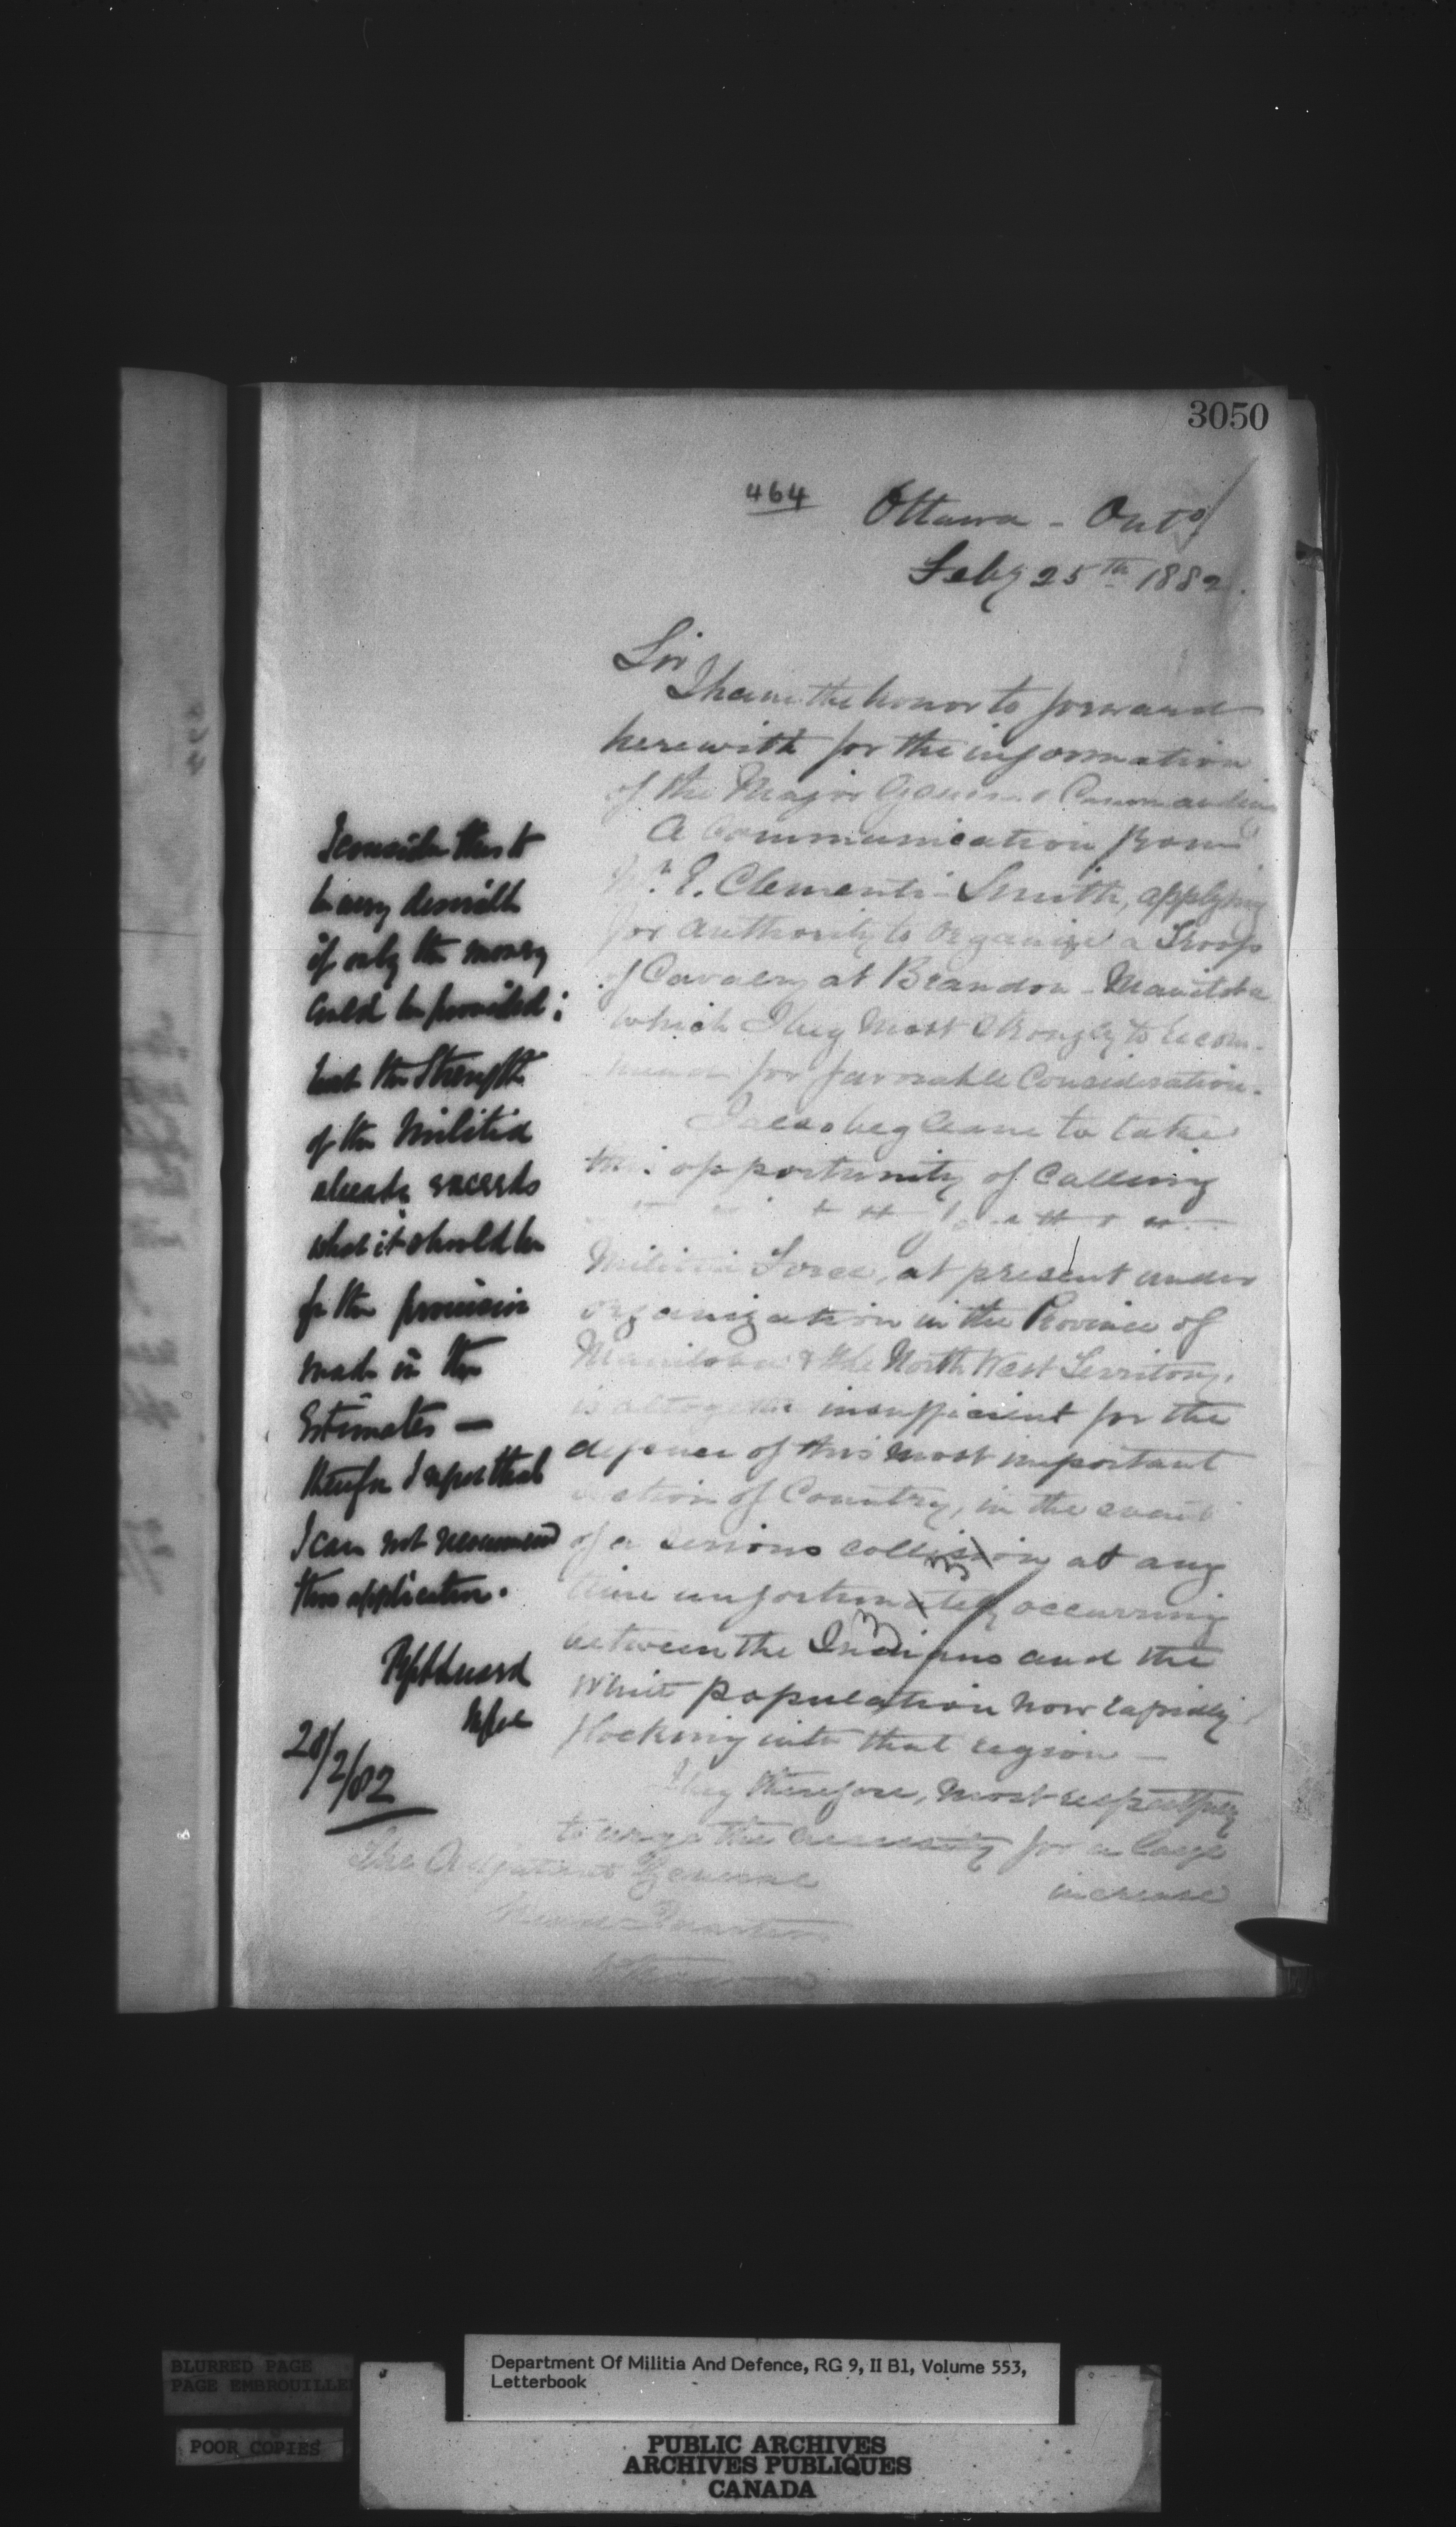 3050
464
Ottawa - Ont⁰
Feby 25th 1882.
Sir
I have the honor to forward
herewith for the information
of the Major General Commanding
A Communication from
Mr. E. Clementi-Smith, applying
for authority to organize a Troop
of Cavalry at Brandon - Manitoba
which I beg most strongly to recom-
mend for favorable Consideration.
I also beg leave to take
this opportunity of Calling
Militia Force, at present under
organization in the Province of
Manitoba & the North West Territory,
is altogether insufficient for the
defence of this most important
section of Country, in the event
of a serious collision at any
time unfortunately occurring
between the Indians and the
White population now rapidly
flocking into that region —
I beg therefore, most respectfully
to urge the necessity for a large
increase
The Adjutant General
Head Quarters
Ottawa
I consider this to
be very desirable
if only the money
could be provided;
but the Strength
of the Militia
already exceeds
what it should be
for the provision
made in the
Estimates —
therefore I regret that
I can not recommend
this application.
28/2/82
BLURRED PAGE
PAGE EMBROUILLE
POOR COPIES
Department Of Militia And Defence, RG 9, II B1, Volume 553,
Letterbook
PUBLIC ARCHIVES
ARCHIVES PUBLIQUES
CANADA